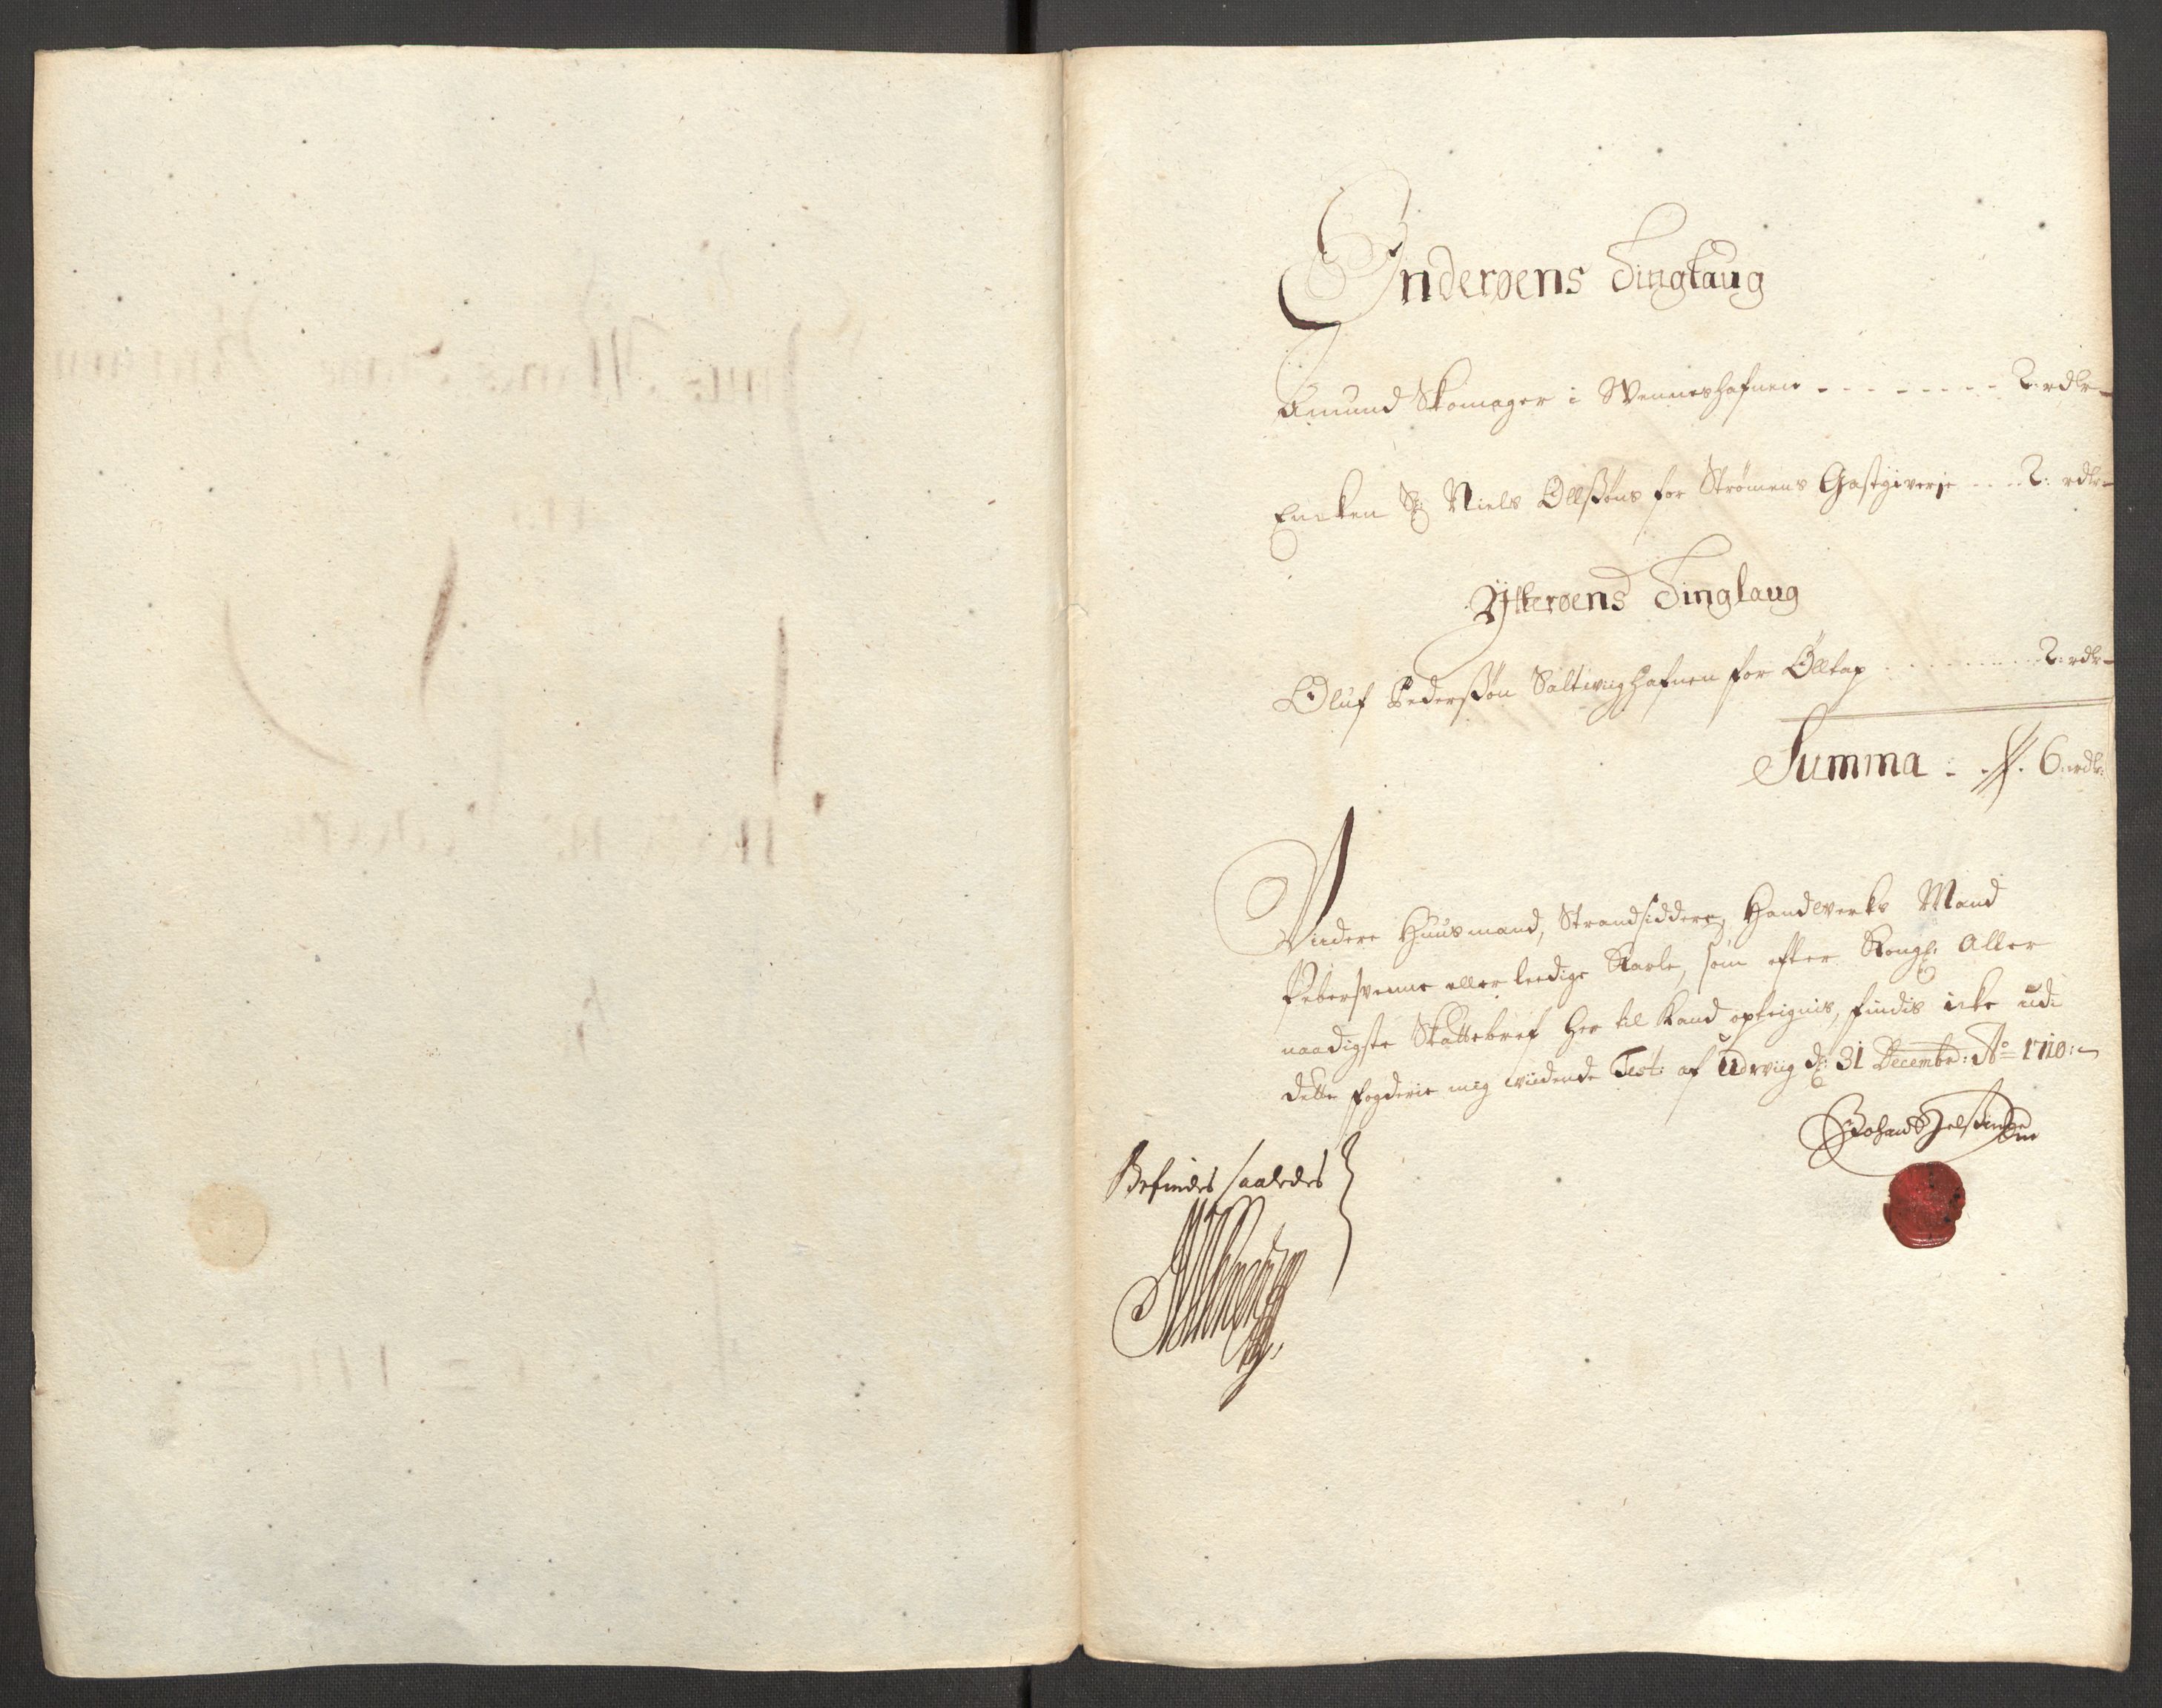 Inderøens Tinglaug
Amund Skomager i Wenneshafnen - - - - - - - - 2: rdlr
Encken Sl: Niels Ollssøns for Strømens Gastgiverje - - - - 2: rdlr
Ytterøens Tinglaug
Oluf Pederssøn Saltwiighafnen for Ølltap - - - - - - 2: rdlr
Summa - - 6: rdlr:
Viidere Huusmænd, Strandsiddere, Handwerks Mænd
Pebersvenne eller leedige Karle, som efter Kongl: Aller
naadigste Skattebref her til kand optegnis, findis icke udi
dette fogderie mig widende Test: af Udwiig d: 31 Decembr: Ao 1710:
Befindes saaledes